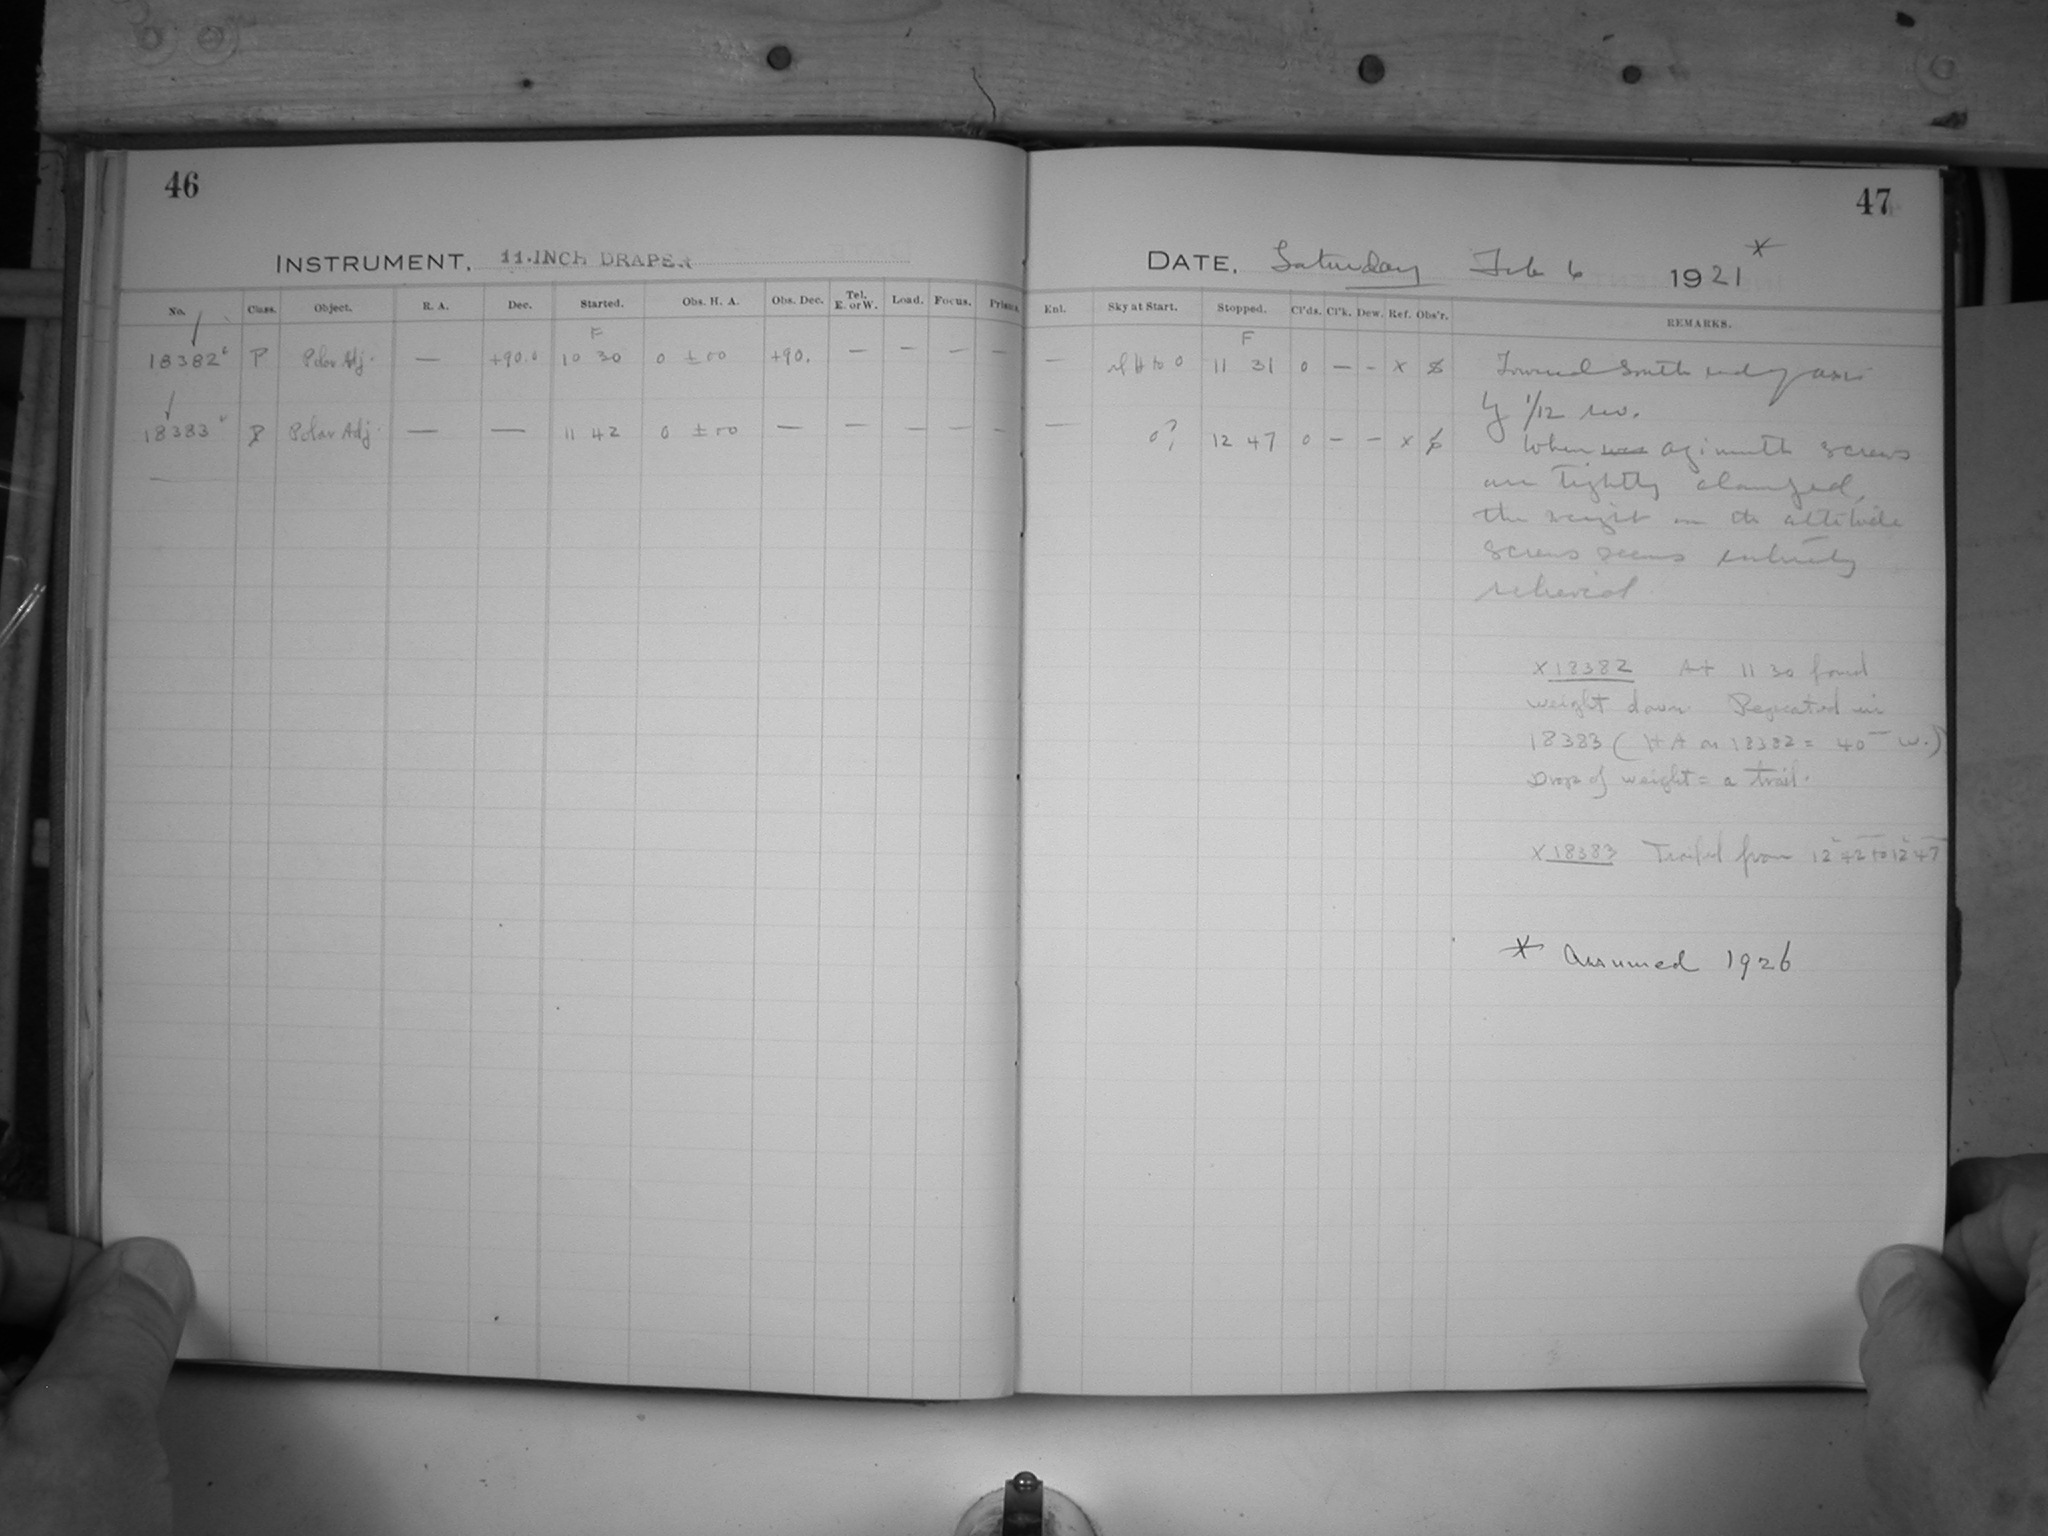 46
47
INSTRUMENT, 11-INCH DRAPER
DATE, Saturday Feb 6 1921 *
No. Class. Object. R. A. Dec. Started. Obs. H. A. Obs. Dec. Tel. E. or W. Load. Focus. Prisms. Enl. Sky at Start. Stopped. Cl'ds. Cl'k. Dew. Ref. Obs'r. REMARKS.
F F
18382 P Polar Adj. — +90.0 10 30 0 ±00 +90. — — — — — 0 11 31 0 — - x
18383 P Polar Adj. — — 11 42 0 ±00 — — — — — — 0? 12 47 0 — — x
South end of axis
by 1/12 rev.
When azimuth screws
are tightly clamped,
the weight on the altitude
screws seems entirely
relieved
X 18382 At 11 30 found
weight down. Repeated in
18383 (HA on 18382 = 40 m W.)
Drop of weight = a trail.
X 18383 Trailed from 12 42 to 12 47
* Assumed 1926